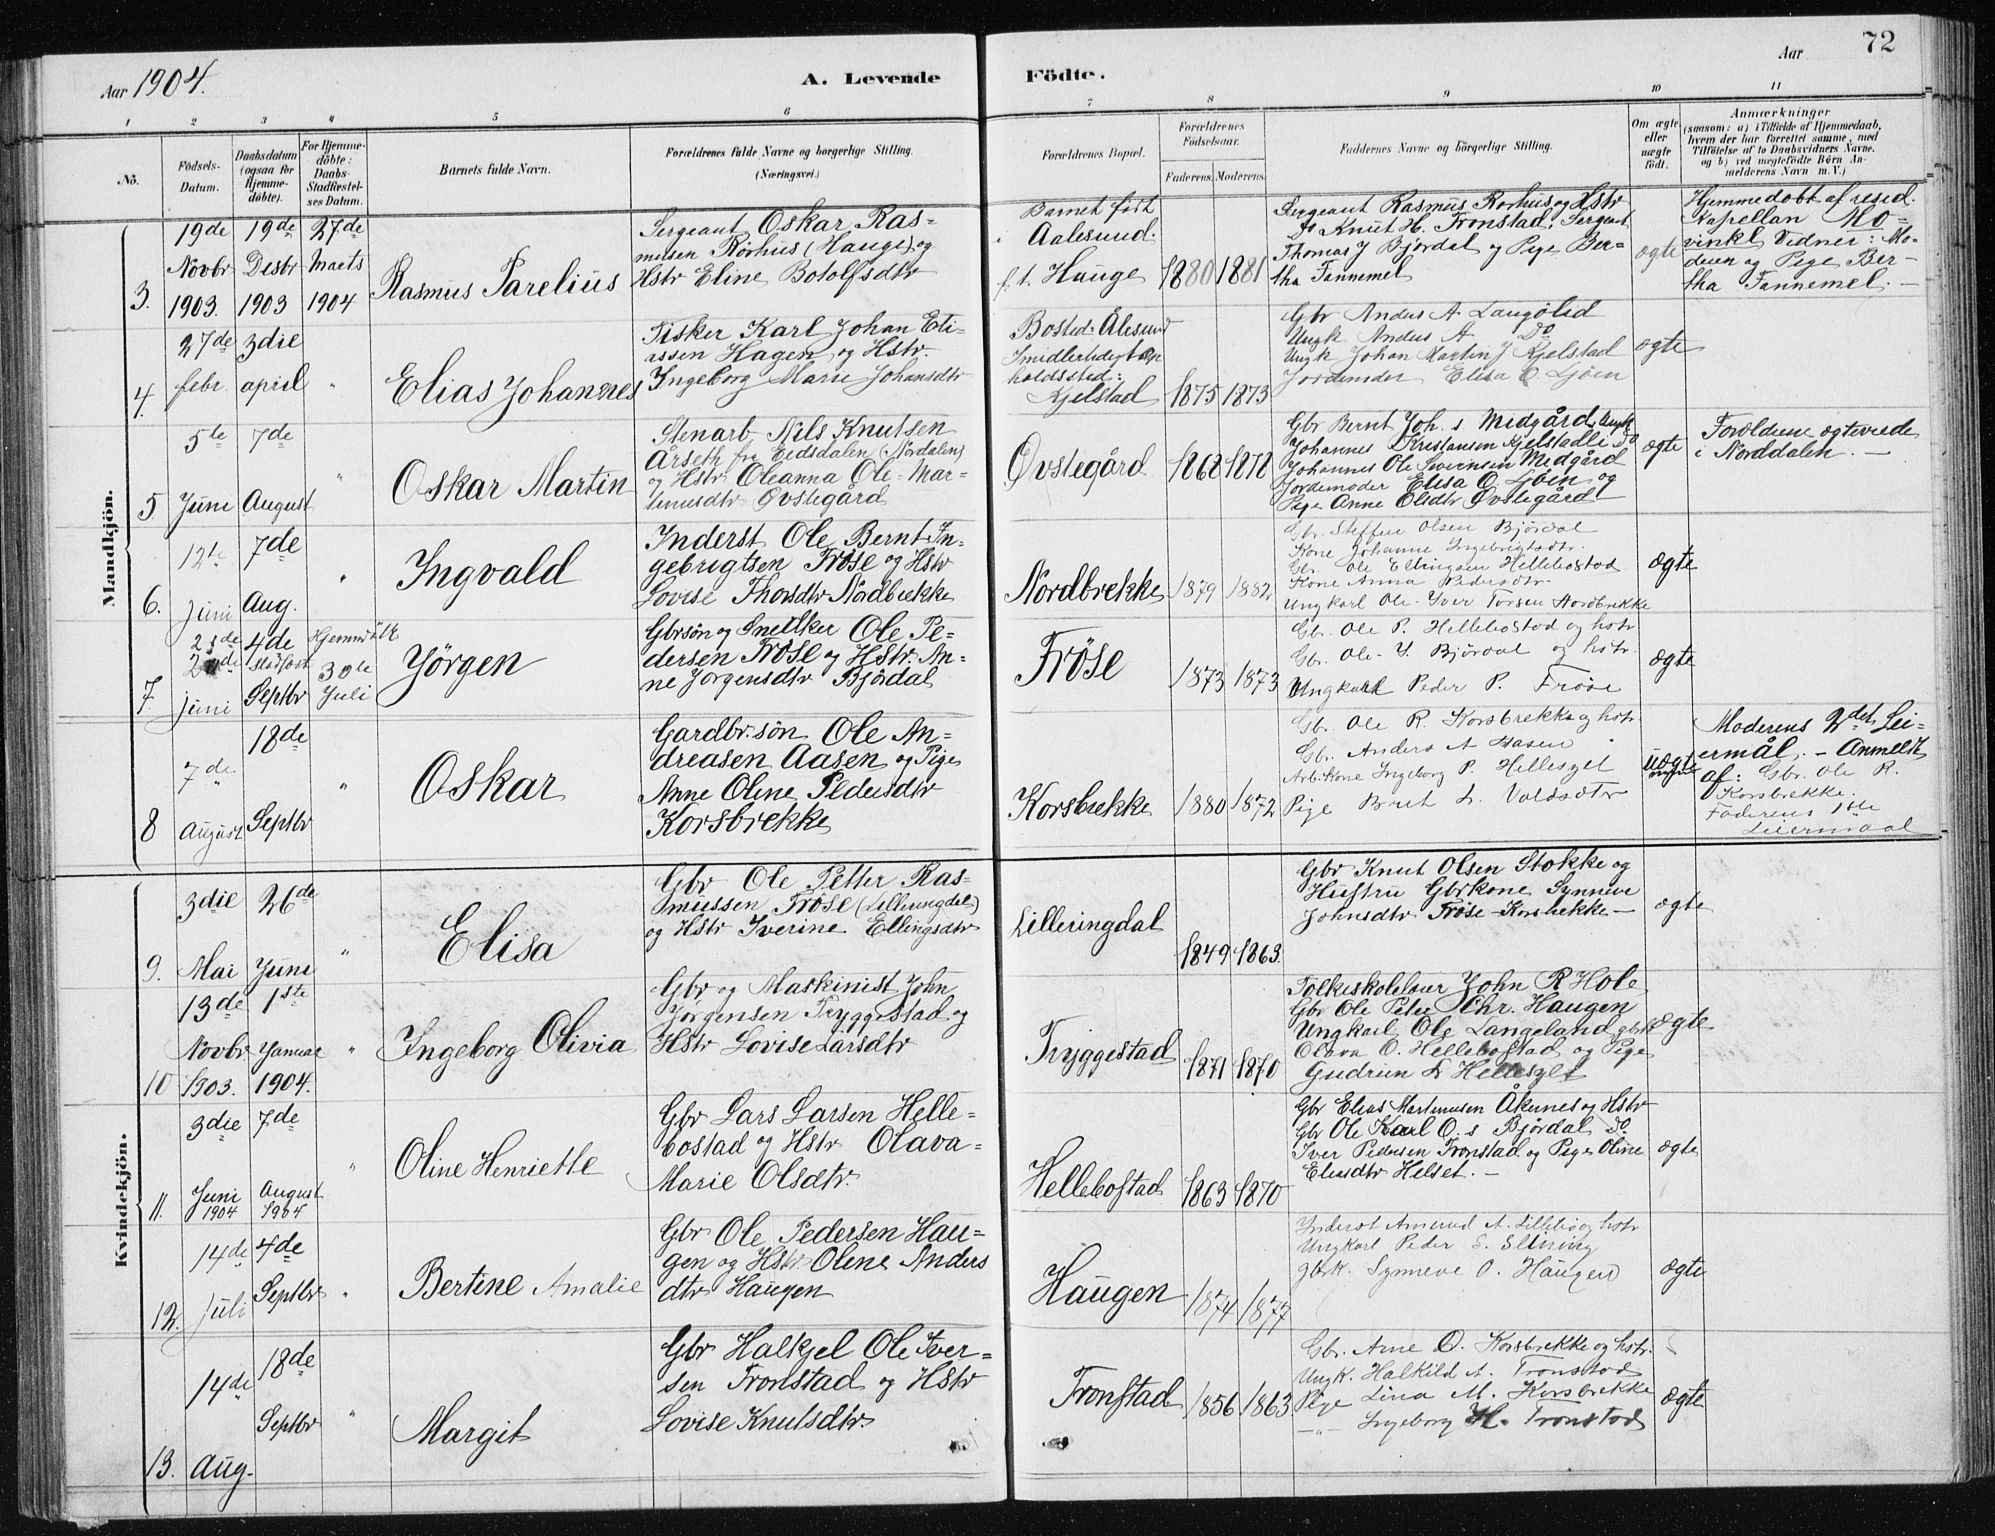 Aar 1904.
A. Levende
Födte.
Aar
72
1
2
3
4
5
6
7
8
9
10
11
No.
Födsels-
Datum.
Daabsdatum
(ogsaa for
Hjemme-
döbte).
For Hjemme-
döbte:
Daabs-
Stadfæstel-
ses Datum.
Barnets fulde Navn.
Forældrenes fulde Navne og borgerlige Stilling.
(Næringsvei.)
Forældrenes Bopæl.
Forældrenes
Födselsaar.
Faderens.
Moderens.
Faddernes Navne og börgerlige Stilling.
Om ægte
eller
uægte
födt.
Anmærkninger
(saasom: a) i Tilfælde af Hjemmedaab,
hvem der har forrettet samme, med
Tilföielse af to Daabsvidners Navne.
og b) ved uægtefödte Börn An-
melderens Navn m. V.)
Mandkjön.
3.
19de
Novbr
1903.
19de
Desbr
1903
27de
Marts
1904
Rasmus Parelius
Sergeant Oskar Ras-
musen Rörhus (Hauge) og
Hstr Eline Botolfsdtr
Barnet födt
i Aalesund.
f. t. Hauge
1880
1881
Sergeant Rasmus Rorhus og Hstr
Do Knut H. Fronstad, Sergeant
Thomas J Bjordal og Pige Ber-
tha Fannemel
ægte
Hjemmedöbt af resid.
Kapellan Mo-
vinkel Vidner: Mo-
deren og Pige Ber-
tha Fannemel. —
4.
27de
febr.
3die
april
"
Elias Johannes
Fisker Karl Johan Eli-
assen Hagen og Hstr.
Ingeborg Marie Johansdtr
Bosted: Ålesund
Imidlertidigt op
holdssted:
Kjelstad
1875
1873
Gbr Anders A Langölid
Ungk Anders A Do
Ungk Johan Martin J Kjelstad
Jordemoder Elisa O Ljöen
ægte
5
5te
Juni
7de
August
"
Oskar Martin
Stenarb Nils Knutsen
Årseth fra Eidsdalen (Nordalen)
og Hstr Oleanna Ole-Mar-
tinusdtr Övstegård
Övstegård
1868
1878
Gbr Bernt Joh. s Midgård, Ungk
Johannes Kristiansen Kjelstadli Do
Johannes Ole Severinsen Midgård
Jordemoder Elisa O. Ljöen og
Pige Anne Elsdtr Övstegård
ægte
Foreldrene ægteviede
i Norddalen. —
6.
12te
Juni
7de
Aug.
"
Ingvald
Inderst Ole Bernt In-
gebrigtsen Fröse og Hstr
Lovise Thorsdtr Nordbrekke
Nordbrekke
1879
1882
Gbr. Steffen Olsen Björdal
Kone Johanne Ingebrigtsdtr.
Gbr. Ole Ellingsen Hellebostad
Kone Anna Pedersdtr.
Ungkarl Ole-Iver Torsen Nordbrekke
ægte
7.
Juni
4de
Septbr
Hjemmedöbt
30te
Juli
Jörgen
Gbrsön og Snedker Ole Pe-
dersen Fröse og Hstr. An-
ne Jörgensdtr Björdal
Fröse
1873
1873
Gbr. Ole P. Hellebostad og hstr
Gbr. Ole-J. Björdal og hstr.
Ungkarl Peder P. Fröse
ægte
8
7de
August
18de
Septbr
"
Oskar
Gardbr.sön Ole An-
dreasen Aasen og Pige
Anne Oline Pedersdtr
Korsbrekke
Korsbrekke
1880
1872
Gbr. Ole R. Korsbrekke og hstr.
Gbr. Anders A Aasen
Arb.kone Ingeborg P. Hellesylt
Pige Brit L. Valdsæter
uægte
Moderens 2det Lei-
ermål. — Anmeldt
af: Gbr. Ole R.
Korsbrekke.
Faderens 1ste
Leiermaal
Kvindekjön.
9.
3die
Mai
26de
Juni
"
Elisa
Gbr Ole Petter Ras-
mussen Fröse (Lilleringdal)
og Hstr Iverine Ellingsdtr
Lilleringdal
1849
1863.
Gbr Knut Olsen Stokke og
Hustru Gbrkone Synneve
Johnsdtr Fröse-Korsbrekke —
ægte
10
13de
Novbr
1903.
1ste
Januar
1904.
"
Ingeborg Olivia
Gbr og Maskinist John
Jörgensen Tryggestad og
Hstr Lovise Larsdtr
Tryggestad
1871
1870
Folkeskolelærer John R Hole
Gbr Ole Peter Chr. Haugen
Ungkarl Ole Langeland gbrk
Olava O. Hellebostad og Pige
Gudrun L Hellesylt
ægte
11.
3die
Juni
1904
7de
August
1904
"
Oline Henriette
Gbr Lars Larsen Helle-
bostad og Hstr Olava-
Marie Olsdtr.
Hellebostad
1863
1870
Gbr Elias Martinusen Åkunes og Hstr
Gbr Ole Karl O. s Björdal Do.
Iver Pedersen Fronstad og Pige Oline
Eliasdtr Helset. —
ægte
12.
14de
Juli
4de
Septbr
"
Bertine Amalie
Gbr Ole Pedersen Hau-
gen og Hstr Oline Anders
dtr Haugen
Haugen
1874
1877
Inderst Amund A. Lillebö og hstr
Ungkarl Peder S.
gbrk. Synneve O. Haugen
ægte
13.
14de
Aug.
18de
Septbr
"
Margit
Gbr Halkjel Ole Iver-
sen Tronstad og Hstr
Lovise Knutsdtr.
Tronstad
1856
1863
Gbr. Arne O. Korsbrekke og hstr.
Ungk. Halkild A. Tronstad
Pige Lina M. Korsbrekke
—"— Ingeborg H. Tronstad
ægte